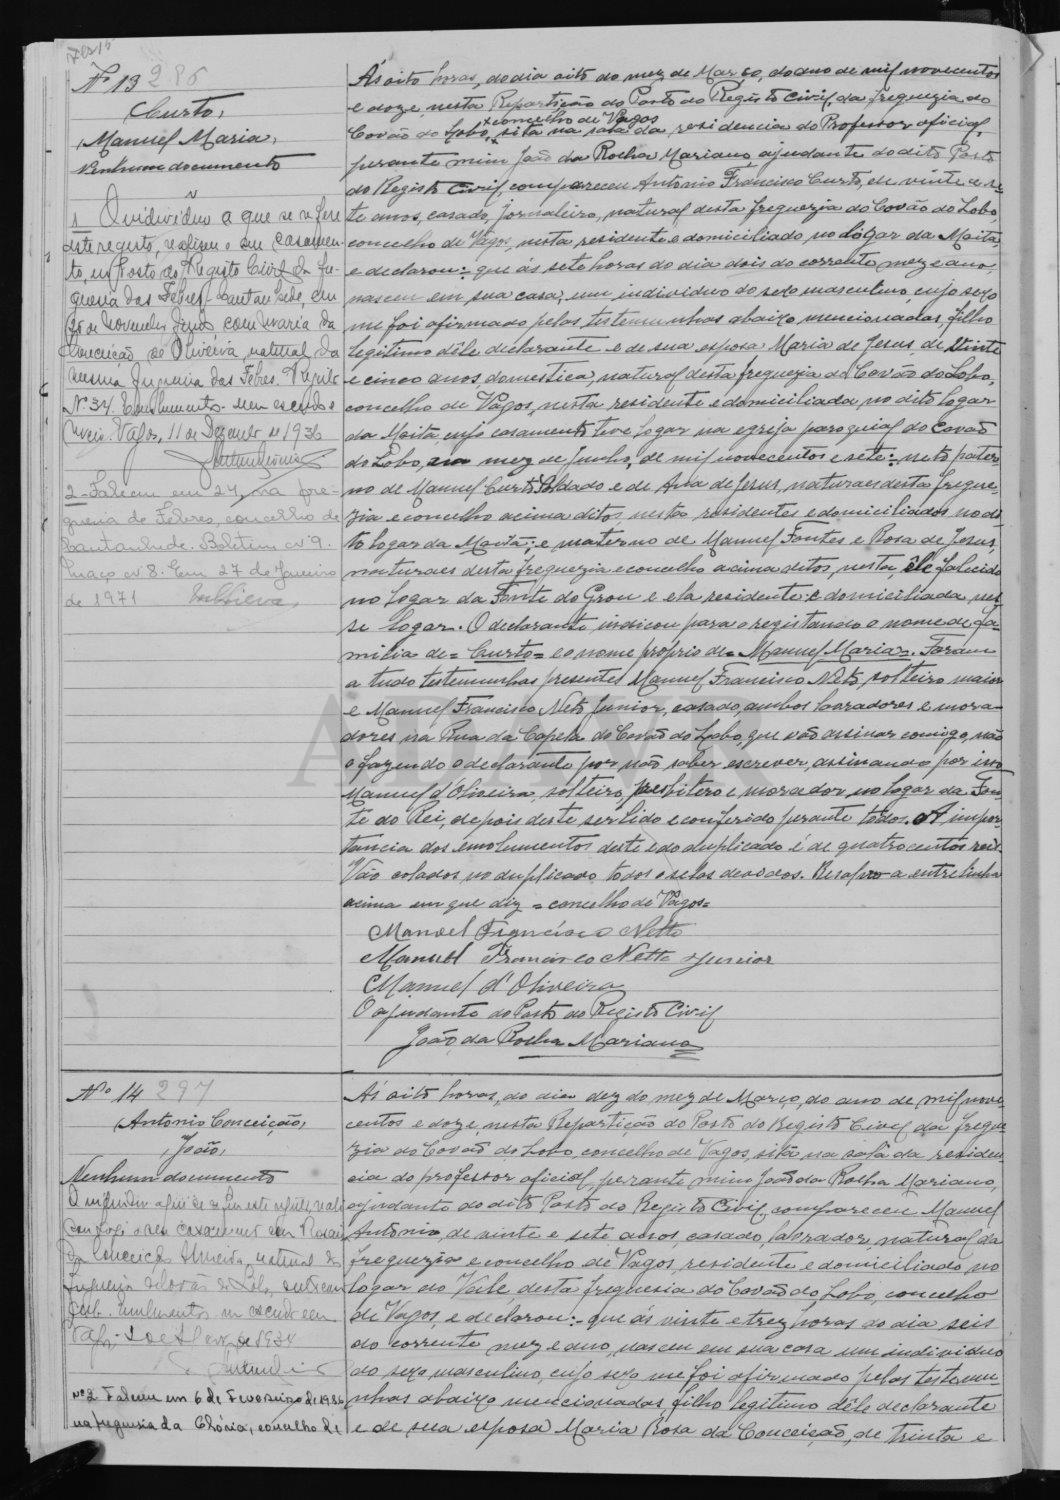 Nº 13 286
Curto,
Manuel Maria,
Nenhum documento
1 O individuo a que se refere
este registo, realisou o seu casamen-
to, no Posto do Registo Civil da fre-
guesia das Febres, Cantanhede, em
de Novembro findo com Maria da
Conceição de Oliveira, natural da
mesma freguesia das Febres. Registo
Nº 34. Emolumentos um escudo e
meio. Vagos, 11 de Dezembro de 1936
2 - Faleceu em 24, na fre-
guesia de Febres, concelho de
Cantanhede. Boletim nº 9.
Maço nº 8. Em 27 de Janeiro
de 1971
Ás oito horas, do dia oito do mez de Março, do ano de mil novecentos
e doze, nesta Repartição do Posto do Registo Civil da freguezia do
concelho de Vagos
Covão do Lobo, sita na sala da residencia do Professor oficial,
perante mim João da Rocha Mariano, ajudante do dito Posto
do Registo Civil, compareceu Antonio Francisco Curto, de vinte e se-
te anos, casado, jornaleiro, natural desta freguezia do Covão do Lobo,
concelho de Vagos, nesta residente e domiciliado no lógar da Maita,
e declarou: que ás sete horas do dia dois do corrente mez e ano,
nasceu em sua casa, um individuo do sexo masculino, cujo sexo
me foi afirmado pelas testemunhas abaixo mencionadas, filho
legitimo dêle declarante e de sua esposa Maria de Jesus, de vinte
e cinco anos, domestica, natural desta freguezia do Covão do Lobo,
concelho de Vagos, nesta residente e domiciliada no dito logar
da Maita, cujo casamento teve logar na egreja paroquial do Covão
do Lobo, em mez de Junho, de mil novecentos e sete: neto pater-
no de Manuel Curto Soldado e de Ana de Jesus, naturaes desta fregue-
zia e concelho acima ditos, nesta residentes e domiciliados no di-
to logar da Maita; e materno de Manuel Fontes e Rosa de Jesus,
naturaes desta freguezia e concelho acima ditos, nesta, êle falecido
no logar da Fonte do Grou e ela residente e domiciliada nes-
se logar. O declarante indicou para o registando o nome de fa-
milia de = Curto = e o nome próprio de = Manuel Maria =. Foram
a tudo testemunhas presentes Manuel Francisco Neto, solteiro, maior
e Manuel Francisco Neto Junior, casado, ambos lavradores e mora-
dores na Rua da Capela do Covão do Lobo, que vão assinar comigo, não
o fazendo o declarante por não saber escrever, assinando por isso
Manuel d'Oliveira, solteiro, presbitero e morador no logar da Fon-
te do Rei, depois deste ser lido e conferido perante todos. A impor-
tancia dos emolumentos deste e do duplicado é de quatrocentos reis.
Vão colados no duplicado todos os selos devidos. Resalvo a entrelinha
acima em que diz = concelho de Vagos =
Manoel Francisco Netto
Manuel Francisco Netto Junior
Manuel d'Oliveira
O ajudante do Posto do Registo Civil
João da Rocha Mariano
Nº 14 297
Antonio Conceição,
João,
Nenhum documento
da Conceição Almeida, natural da
Nº 2 Faleceu em 6 de Fevereiro de 1986
na freguesia da Glória, concelho de
Ás oito horas, do dia dez do mez de Março, do ano de mil nove-
centos e doze, nesta Repartição do Posto do Registo Civil da fregue-
zia do Covão do Lobo, concelho de Vagos, sita na sala da residen-
cia do professor oficial, perante mim João da Rocha Mariano,
ajudante do dito Posto do Registo Civil, compareceu Manuel
Antonio, de vinte e sete anos, casado, lavrador, natural da
freguezia e concelho de Vagos, residente e domiciliado no
logar do Vale desta freguesia do Covão do Lobo, concelho
de Vagos, e declarou: - que ás vinte e trez horas do dia seis
do corrente mez e ano, nasceu em sua casa um individuo
do sexo masculino, cujo sexo me foi afirmado pelas testemu-
nhas abaixo mencionadas, filho legitimo dêle declarante
e de sua esposa Maria Rosa da Conceição, de trinta e